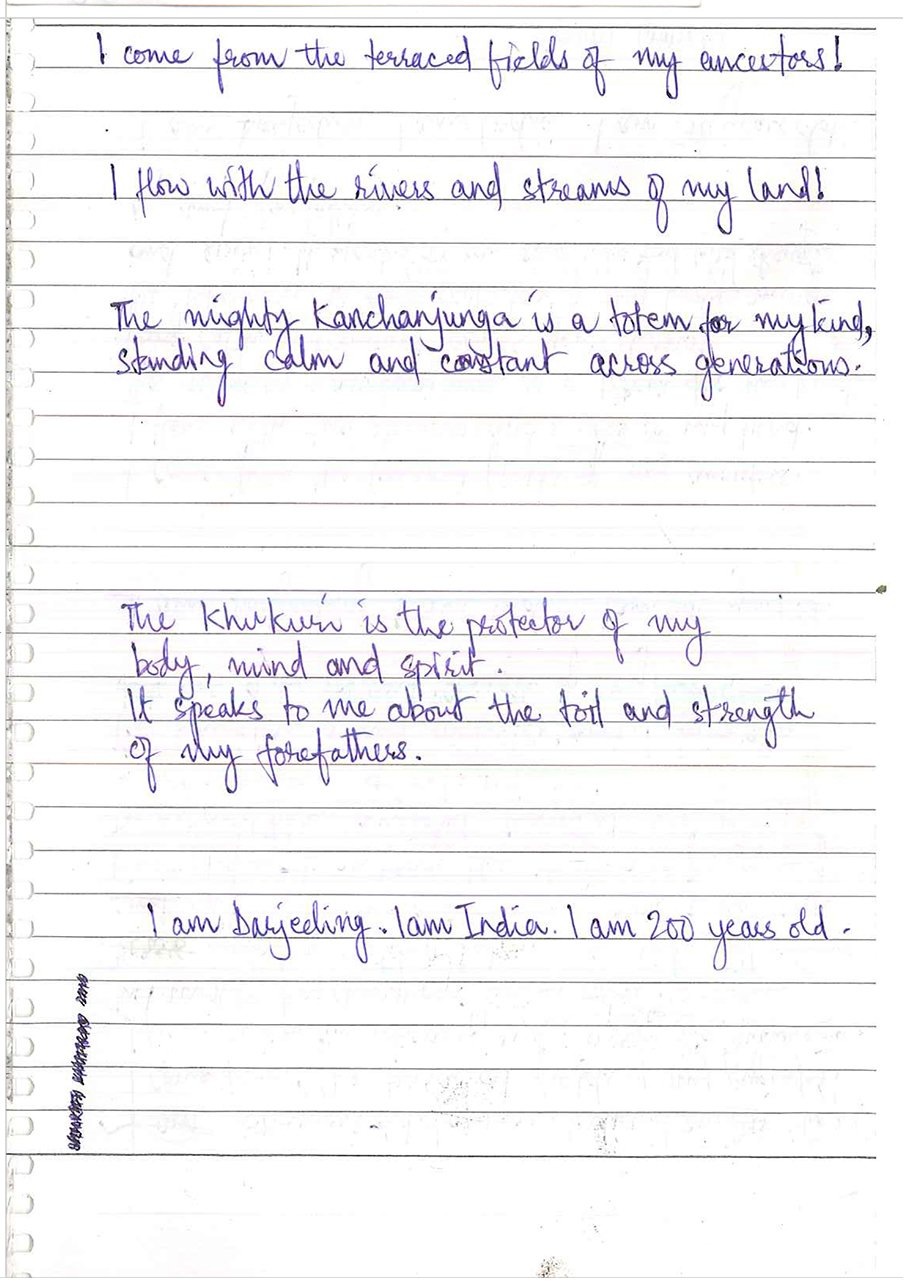 I come from the terraced fields of my ancestors!
I flow with the rivers and streams of my land!
The mighty Kanchanjunga is a totem for my kind,
standing calm and constant across generations.
The Khukuri is the protector of my
body, mind and spirit.
It speaks to me about the toil and strength
of my forefathers.
I am Darjeeling. I am India. I am 200 years old.